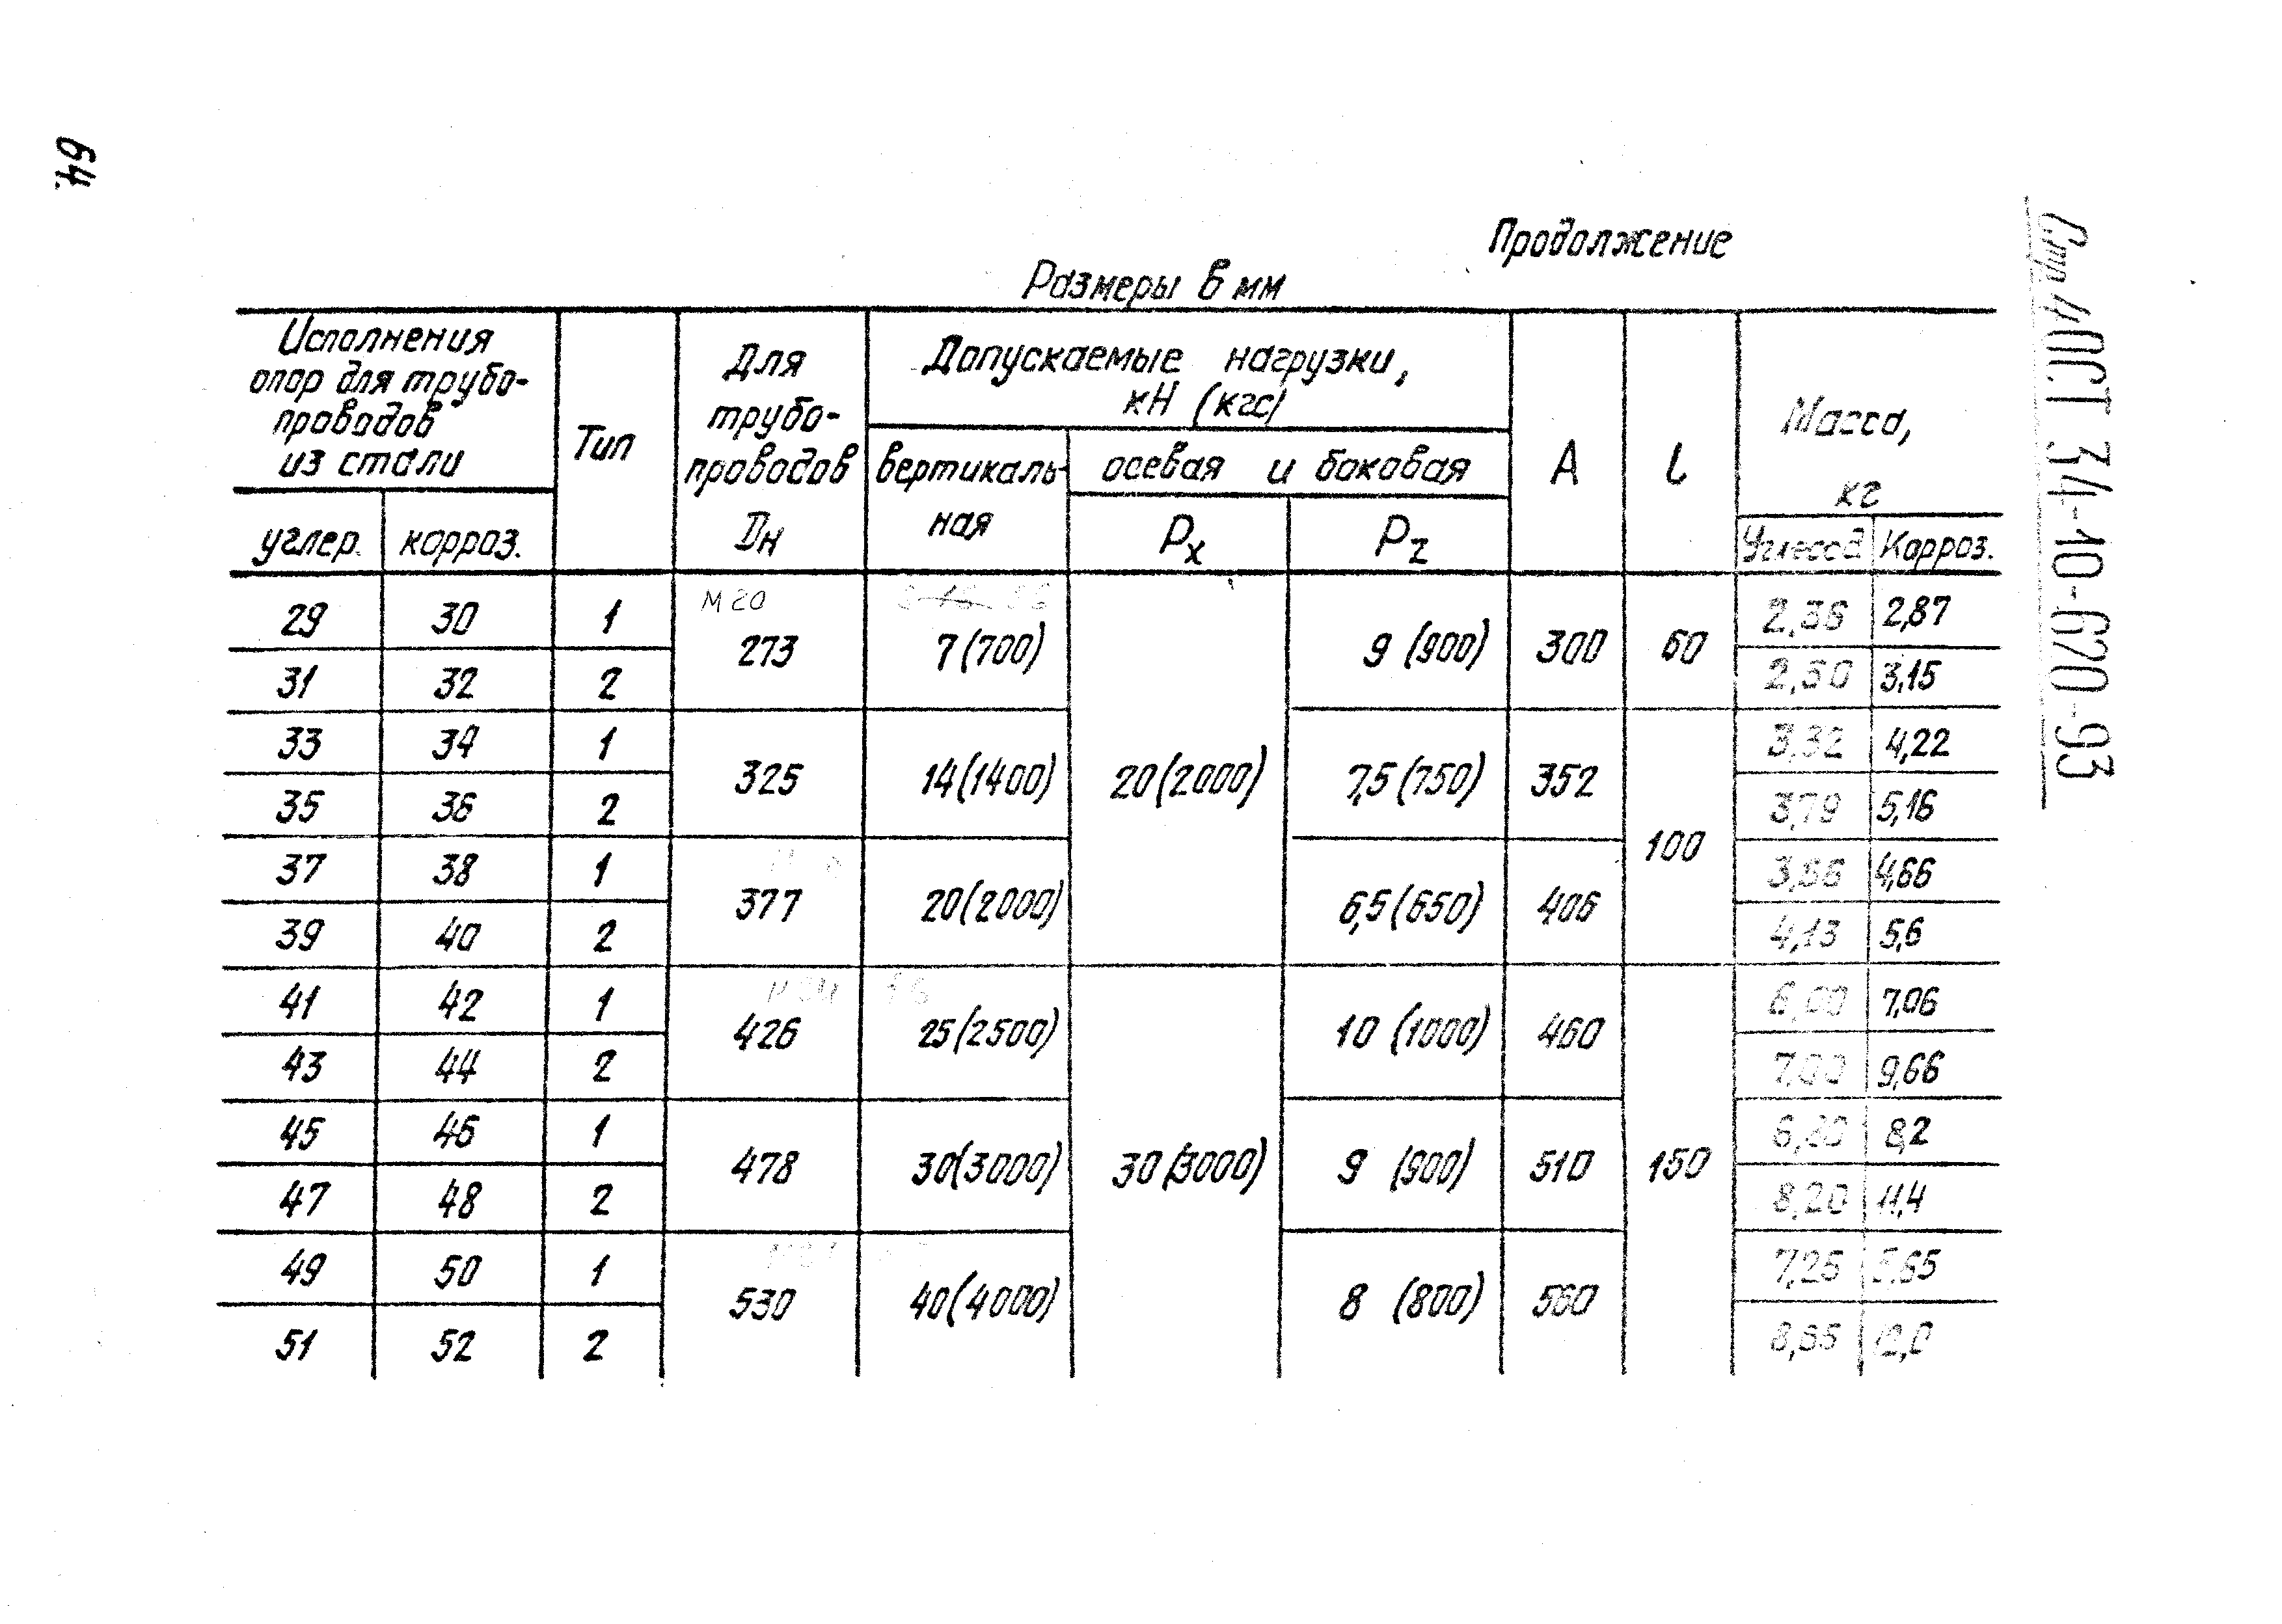 64.
Стр.4 ОСТ 34-10-620-93
Продолжение
Размеры в мм
Исполнения
опор для трубо-
проводов
из стали
углер.
корроз.
Тип
Для
трубо-
проводов
Dн
Допускаемые нагрузки,
кН (кгс)
вертикаль-
ная
осевая и боковая
Px
Pz
A
l
Масса,
кг
Корроз.
М20
29 30 1 273 7(700) 20(2000) 9 (900) 300 60 2,36 2,87
31 32 2 2,50 3,15
33 34 1 325 14(1400) 7,5(750) 352 100 3,32 4,22
35 36 2 3,79 5,16
37 38 1 377 20(2000) 6,5(650) 406 4,66
39 40 2 4,13 5,6
41 42 1 426 25(2500) 30(3000) 10 (1000) 460 150 6,00 7,06
43 44 2 7,00 9,66
45 46 1 478 30(3000) 9 (900) 510 8,2
47 48 2 8,20 11,4
49 50 1 530 40(4000) 8 (800) 560 7,25
51 52 2